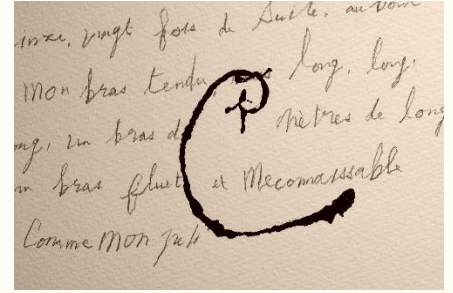 inze, vingt fois de suite, au bout
mon bras tendu long, long,
ng, un bras d mètres de long
n bras fluet et Meconnaissable
Comme Mon